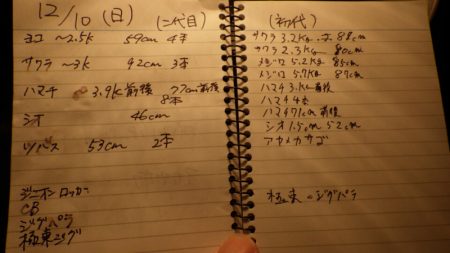 12/10 (日) (二代目)
ヨコ ～2.5k 59cm 4本
サワラ ～3k 92cm 3本
ハマチ 3.9k前後 77cm前後
8本
シオ 46cm
ツバス 53cm 2本
ジャイアン ロッカー
CB
ジグパラ
極東ジグ
(初代)
サワラ 3.2kg 88cm
サワラ 2.3kg 80cm
メジロ 5.2kg 85cm
メジロ 5.7kg 87cm
ハマチ 3.kg前後
ハマチ 4本
ハマチ 71cm前後
シオ 1.5 52cm
アヤメカサゴ
極東 ジグパラ